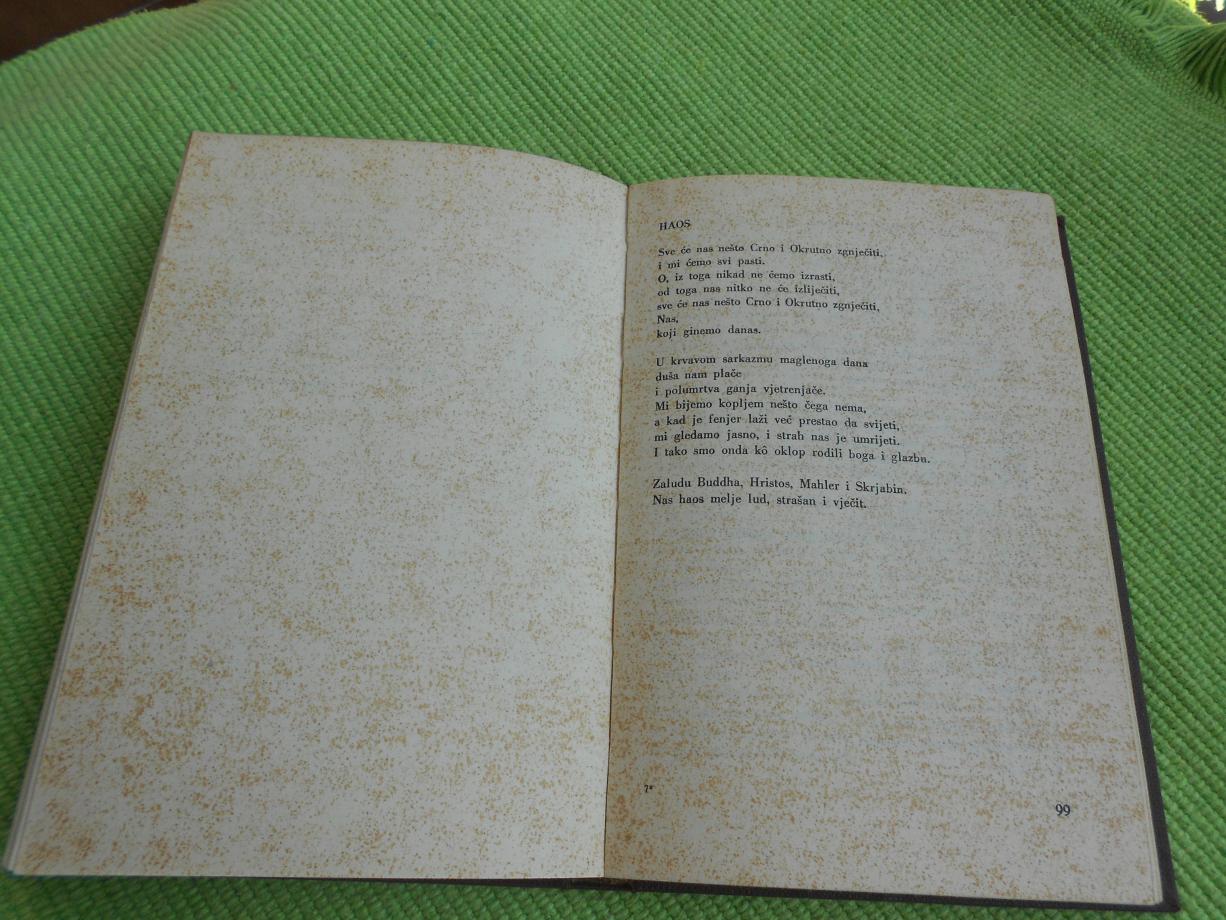 HAOS
Sve će nas nešto Crno i Okrutno zgnječiti,
i mi ćemo svi pasti.
O, iz toga nikad ne ćemo izrasti,
od toga nas nitko ne će izliječiti,
sve će nas nešto Crno i Okrutno zgnječiti,
Nas,
koji ginemo danas.
U krvavom sarkazmu maglenoga dana
duša nam plače
i polumrtva ganja vjetrenjače.
Mi bijemo kopljem nešto čega nema,
a kad je fenjer laži već prestao da svijeti,
mi gledamo jasno, i strah nas je umrijeti.
I tako smo onda kô oklop rodili boga i glazbu.
Zaludu Buddha, Hristos, Mahler i Skrjabin.
Nas haos melje lud, strašan i vječit.
7*
99